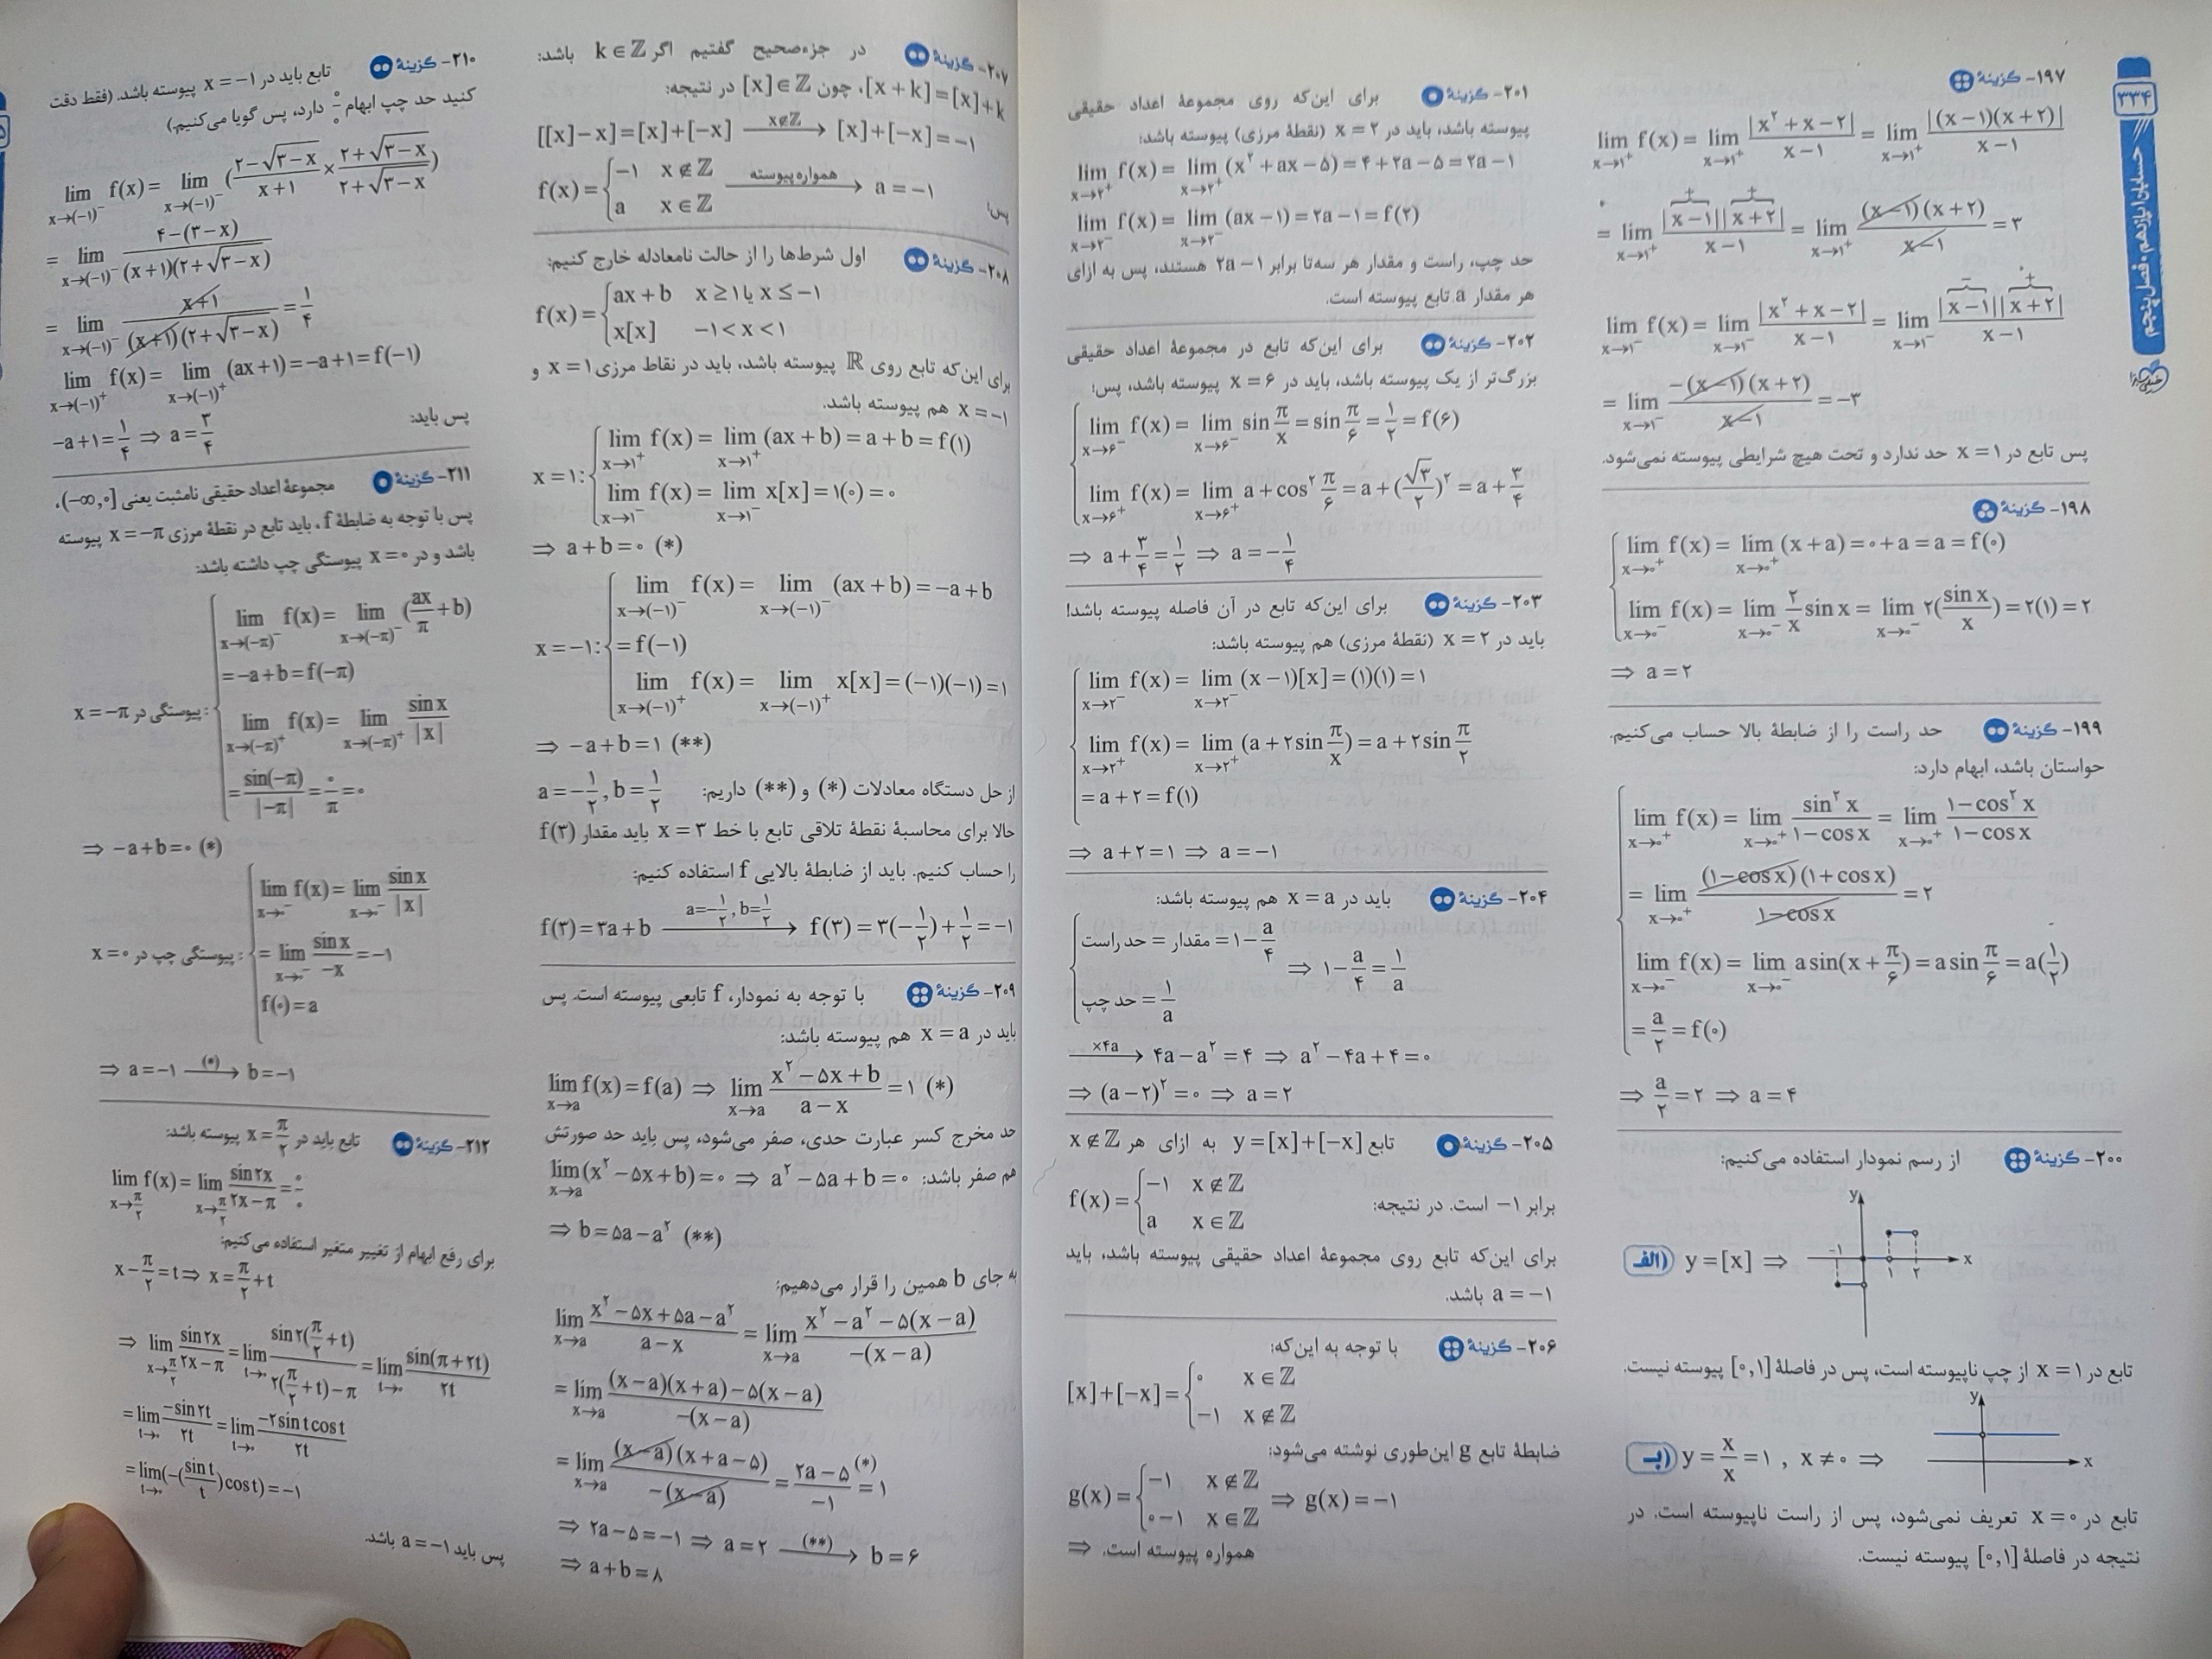 ۳۳۴
حسابان یازدهم • فصل پنجم
۱۹۷- گزینهٔ
lim f(x) = lim |x²+x−۲| / (x−۱) = lim |(x−۱)(x+۲)| / (x−۱)
x→۱⁺ x→۱⁺ x→۱⁺
= lim |x−۱||x+۲| / (x−۱) = lim (x−۱)(x+۲) / (x−۱) = ۳
x→۱⁺ x→۱⁺
lim f(x) = lim |x²+x−۲| / (x−۱) = lim |x−۱||x+۲| / (x−۱)
x→۱⁻ x→۱⁻ x→۱⁻
= lim −(x−۱)(x+۲) / (x−۱) = −۳
x→۱⁻
پس تابع در x = ۱ حد ندارد و تحت هیچ شرایطی پیوسته نمی‌شود.
۱۹۸- گزینهٔ
lim f(x) = lim (x+a) = ۰+a = a = f(۰)
x→۰⁺ x→۰⁺
lim f(x) = lim ۲/x sin x = lim ۲(sin x / x) = ۲(۱) = ۲
x→۰⁻ x→۰⁻ x→۰⁻
⇒ a = ۲
۱۹۹- گزینهٔ حد راست را از ضابطهٔ بالا حساب می‌کنیم.
حواستان باشد، ابهام دارد:
lim f(x) = lim sin²x / (۱−cos x) = lim (۱−cos²x) / (۱−cos x)
x→۰⁺ x→۰⁺ x→۰⁺
= lim (۱−cos x)(۱+cos x) / (۱−cos x) = ۲
x→۰⁺
lim f(x) = lim a sin(x + π/۶) = a sin π/۶ = a(۱/۲)
x→۰⁻ x→۰⁻
= a/۲ = f(۰)
⇒ a/۲ = ۲ ⇒ a = ۴
۲۰۰- گزینهٔ از رسم نمودار استفاده می‌کنیم:
الف) y = [x] ⇒
y
−۱ ۱ ۲ x
تابع در x = ۱ از چپ ناپیوسته است، پس در فاصلهٔ [۰,۱] پیوسته نیست.
ب) y = x/x = ۱ , x ≠ ۰ ⇒
y
x
تابع در x = ۰ تعریف نمی‌شود، پس از راست ناپیوسته است. در
نتیجه در فاصلهٔ [۰,۱] پیوسته نیست.
۲۰۱- گزینهٔ برای این‌که روی مجموعهٔ اعداد حقیقی
پیوسته باشد، باید در x = ۲ (نقطهٔ مرزی) پیوسته باشد:
lim f(x) = lim (x²+ax−۵) = ۴+۲a−۵ = ۲a−۱
x→۲⁺ x→۲⁺
lim f(x) = lim (ax−۱) = ۲a−۱ = f(۲)
x→۲⁻ x→۲⁻
حد چپ، راست و مقدار هر سه‌تا برابر ۲a−۱ هستند، پس به ازای
هر مقدار a تابع پیوسته است.
۲۰۲- گزینهٔ برای این‌که تابع در مجموعهٔ اعداد حقیقی
بزرگ‌تر از یک پیوسته باشد، باید در x = ۶ پیوسته باشد، پس:
lim f(x) = lim sin π/x = sin π/۶ = ۱/۲ = f(۶)
x→۶⁻ x→۶⁻
lim f(x) = lim a+cos² π/۶ = a+(√۳/۲)² = a+۳/۴
x→۶⁺ x→۶⁺
⇒ a+۳/۴ = ۱/۲ ⇒ a = −۱/۴
۲۰۳- گزینهٔ برای این‌که تابع در آن فاصله پیوسته باشد!
باید در x = ۲ (نقطهٔ مرزی) هم پیوسته باشد:
lim f(x) = lim (x−۱)[x] = (۱)(۱) = ۱
x→۲⁻ x→۲⁻
lim f(x) = lim (a+۲sin π/x) = a+۲sin π/۲
x→۲⁺ x→۲⁺
= a+۲ = f(۱)
⇒ a+۲ = ۱ ⇒ a = −۱
۲۰۴- گزینهٔ باید در x = a هم پیوسته باشد:
حد راست = مقدار = ۱−a/۴
حد چپ = ۱/a
⇒ ۱−a/۴ = ۱/a
×۴a → ۴a−a² = ۴ ⇒ a²−۴a+۴ = ۰
⇒ (a−۲)² = ۰ ⇒ a = ۲
۲۰۵- گزینهٔ تابع y = [x]+[−x] به ازای هر x ∉ ℤ
برابر −۱ است. در نتیجه: f(x) = { −۱ x ∉ ℤ
a x ∈ ℤ
برای این‌که تابع روی مجموعهٔ اعداد حقیقی پیوسته باشد، باید
a = −۱ باشد.
۲۰۶- گزینهٔ با توجه به این‌که:
[x]+[−x] = { ۰ x ∈ ℤ
−۱ x ∉ ℤ
ضابطهٔ تابع g این‌طوری نوشته می‌شود:
g(x) = { −۱ x ∉ ℤ
۰−۱ x ∈ ℤ ⇒ g(x) = −۱
⇒ همواره پیوسته است.
۲۰۷- گزینهٔ در جزءصحیح گفتیم اگر k ∈ ℤ باشد:
[x+k] = [x]+k، چون [x] ∈ ℤ در نتیجه:
[[x]−x] = [x]+[−x] x∉ℤ → [x]+[−x] = −۱
f(x) = { −۱ x ∉ ℤ
a x ∈ ℤ همواره پیوسته → a = −۱
پس:
۲۰۸- گزینهٔ اول شرط‌ها را از حالت نامعادله خارج کنیم:
f(x) = { ax+b x ≥ ۱ یا x ≤ −۱
x[x] −۱ < x < ۱
برای این‌که تابع روی ℝ پیوسته باشد، باید در نقاط مرزی x = ۱ و
x = −۱ هم پیوسته باشد.
x = ۱: lim f(x) = lim (ax+b) = a+b = f(۱)
x→۱⁺ x→۱⁺
lim f(x) = lim x[x] = ۱(۰) = ۰
x→۱⁻ x→۱⁻
⇒ a+b = ۰ (*)
x = −۱: lim f(x) = lim (ax+b) = −a+b
x→(−۱)⁻ x→(−۱)⁻
= f(−۱)
lim f(x) = lim x[x] = (−۱)(−۱) = ۱
x→(−۱)⁺ x→(−۱)⁺
⇒ −a+b = ۱ (**)
از حل دستگاه معادلات (*) و (**) داریم: a = −۱/۲ , b = ۱/۲
حالا برای محاسبهٔ نقطهٔ تلاقی تابع با خط x = ۳ باید مقدار f(۳)
را حساب کنیم. باید از ضابطهٔ بالایی f استفاده کنیم:
f(۳) = ۳a+b a=−۱/۲ , b=۱/۲ → f(۳) = ۳(−۱/۲)+۱/۲ = −۱
۲۰۹- گزینهٔ با توجه به نمودار، f تابعی پیوسته است. پس
باید در x = a هم پیوسته باشد:
lim f(x) = f(a) ⇒ lim (x²−۵x+b) / (a−x) = ۱ (*)
x→a x→a
حد مخرج کسر عبارت حدی، صفر می‌شود، پس باید حد صورتش
هم صفر باشد: lim (x²−۵x+b) = ۰ ⇒ a²−۵a+b = ۰
x→a
⇒ b = ۵a−a² (**)
به جای b همین را قرار می‌دهیم:
lim (x²−۵x+۵a−a²) / (a−x) = lim (x²−a²−۵(x−a)) / −(x−a)
x→a x→a
= lim ((x−a)(x+a)−۵(x−a)) / −(x−a)
x→a
= lim (x−a)(x+a−۵) / −(x−a) = (۲a−۵) / −۱ (*)= ۱
x→a
⇒ ۲a−۵ = −۱ ⇒ a = ۲ (**) → b = ۶
⇒ a+b = ۸
۲۱۰- گزینهٔ تابع باید در x = −۱ پیوسته باشد. (فقط دقت
کنید حد چپ ابهام ۰/۰ دارد، پس گویا می‌کنیم.)
lim f(x) = lim ((۲−√(۳−x)) / (x+۱) × (۲+√(۳−x)) / (۲+√(۳−x)))
x→(−۱)⁻ x→(−۱)⁻
= lim (۴−(۳−x)) / ((x+۱)(۲+√(۳−x)))
x→(−۱)⁻
= lim (x+۱) / ((x+۱)(۲+√(۳−x))) = ۱/۴
x→(−۱)⁻
lim f(x) = lim (ax+۱) = −a+۱ = f(−۱)
x→(−۱)⁺ x→(−۱)⁺
پس باید:
−a+۱ = ۱/۴ ⇒ a = ۳/۴
۲۱۱- گزینهٔ مجموعهٔ اعداد حقیقی نامثبت یعنی (−∞,۰]،
پس با توجه به ضابطهٔ f، باید تابع در نقطهٔ مرزی x = −π پیوسته
باشد و در x = ۰ پیوستگی چپ داشته باشد:
پیوستگی در x = −π: lim f(x) = lim (ax/π + b)
x→(−π)⁻ x→(−π)⁻
= −a+b = f(−π)
lim f(x) = lim sin x / |x|
x→(−π)⁺ x→(−π)⁺
= sin(−π) / |−π| = ۰/π = ۰
⇒ −a+b = ۰ (*)
پیوستگی چپ در x = ۰: lim f(x) = lim sin x / |x|
x→۰⁻ x→۰⁻
= lim sin x / −x = −۱
x→۰⁻
f(۰) = a
⇒ a = −۱ (*) → b = −۱
۲۱۲- گزینهٔ تابع باید در x = π/۲ پیوسته باشد:
lim f(x) = lim sin ۲x / (۲x−π) = ۰/۰
x→π/۲ x→π/۲
برای رفع ابهام از تغییر متغیر استفاده می‌کنیم:
x−π/۲ = t ⇒ x = π/۲+t
⇒ lim sin ۲x / (۲x−π) = lim sin ۲(π/۲+t) / (۲(π/۲+t)−π) = lim sin(π+۲t) / ۲t
x→π/۲ t→۰ t→۰
= lim −sin ۲t / ۲t = lim −۲sin t cos t / ۲t
t→۰ t→۰
= lim (−(sin t / t) cos t) = −۱
t→۰
پس باید a = −۱ باشد.